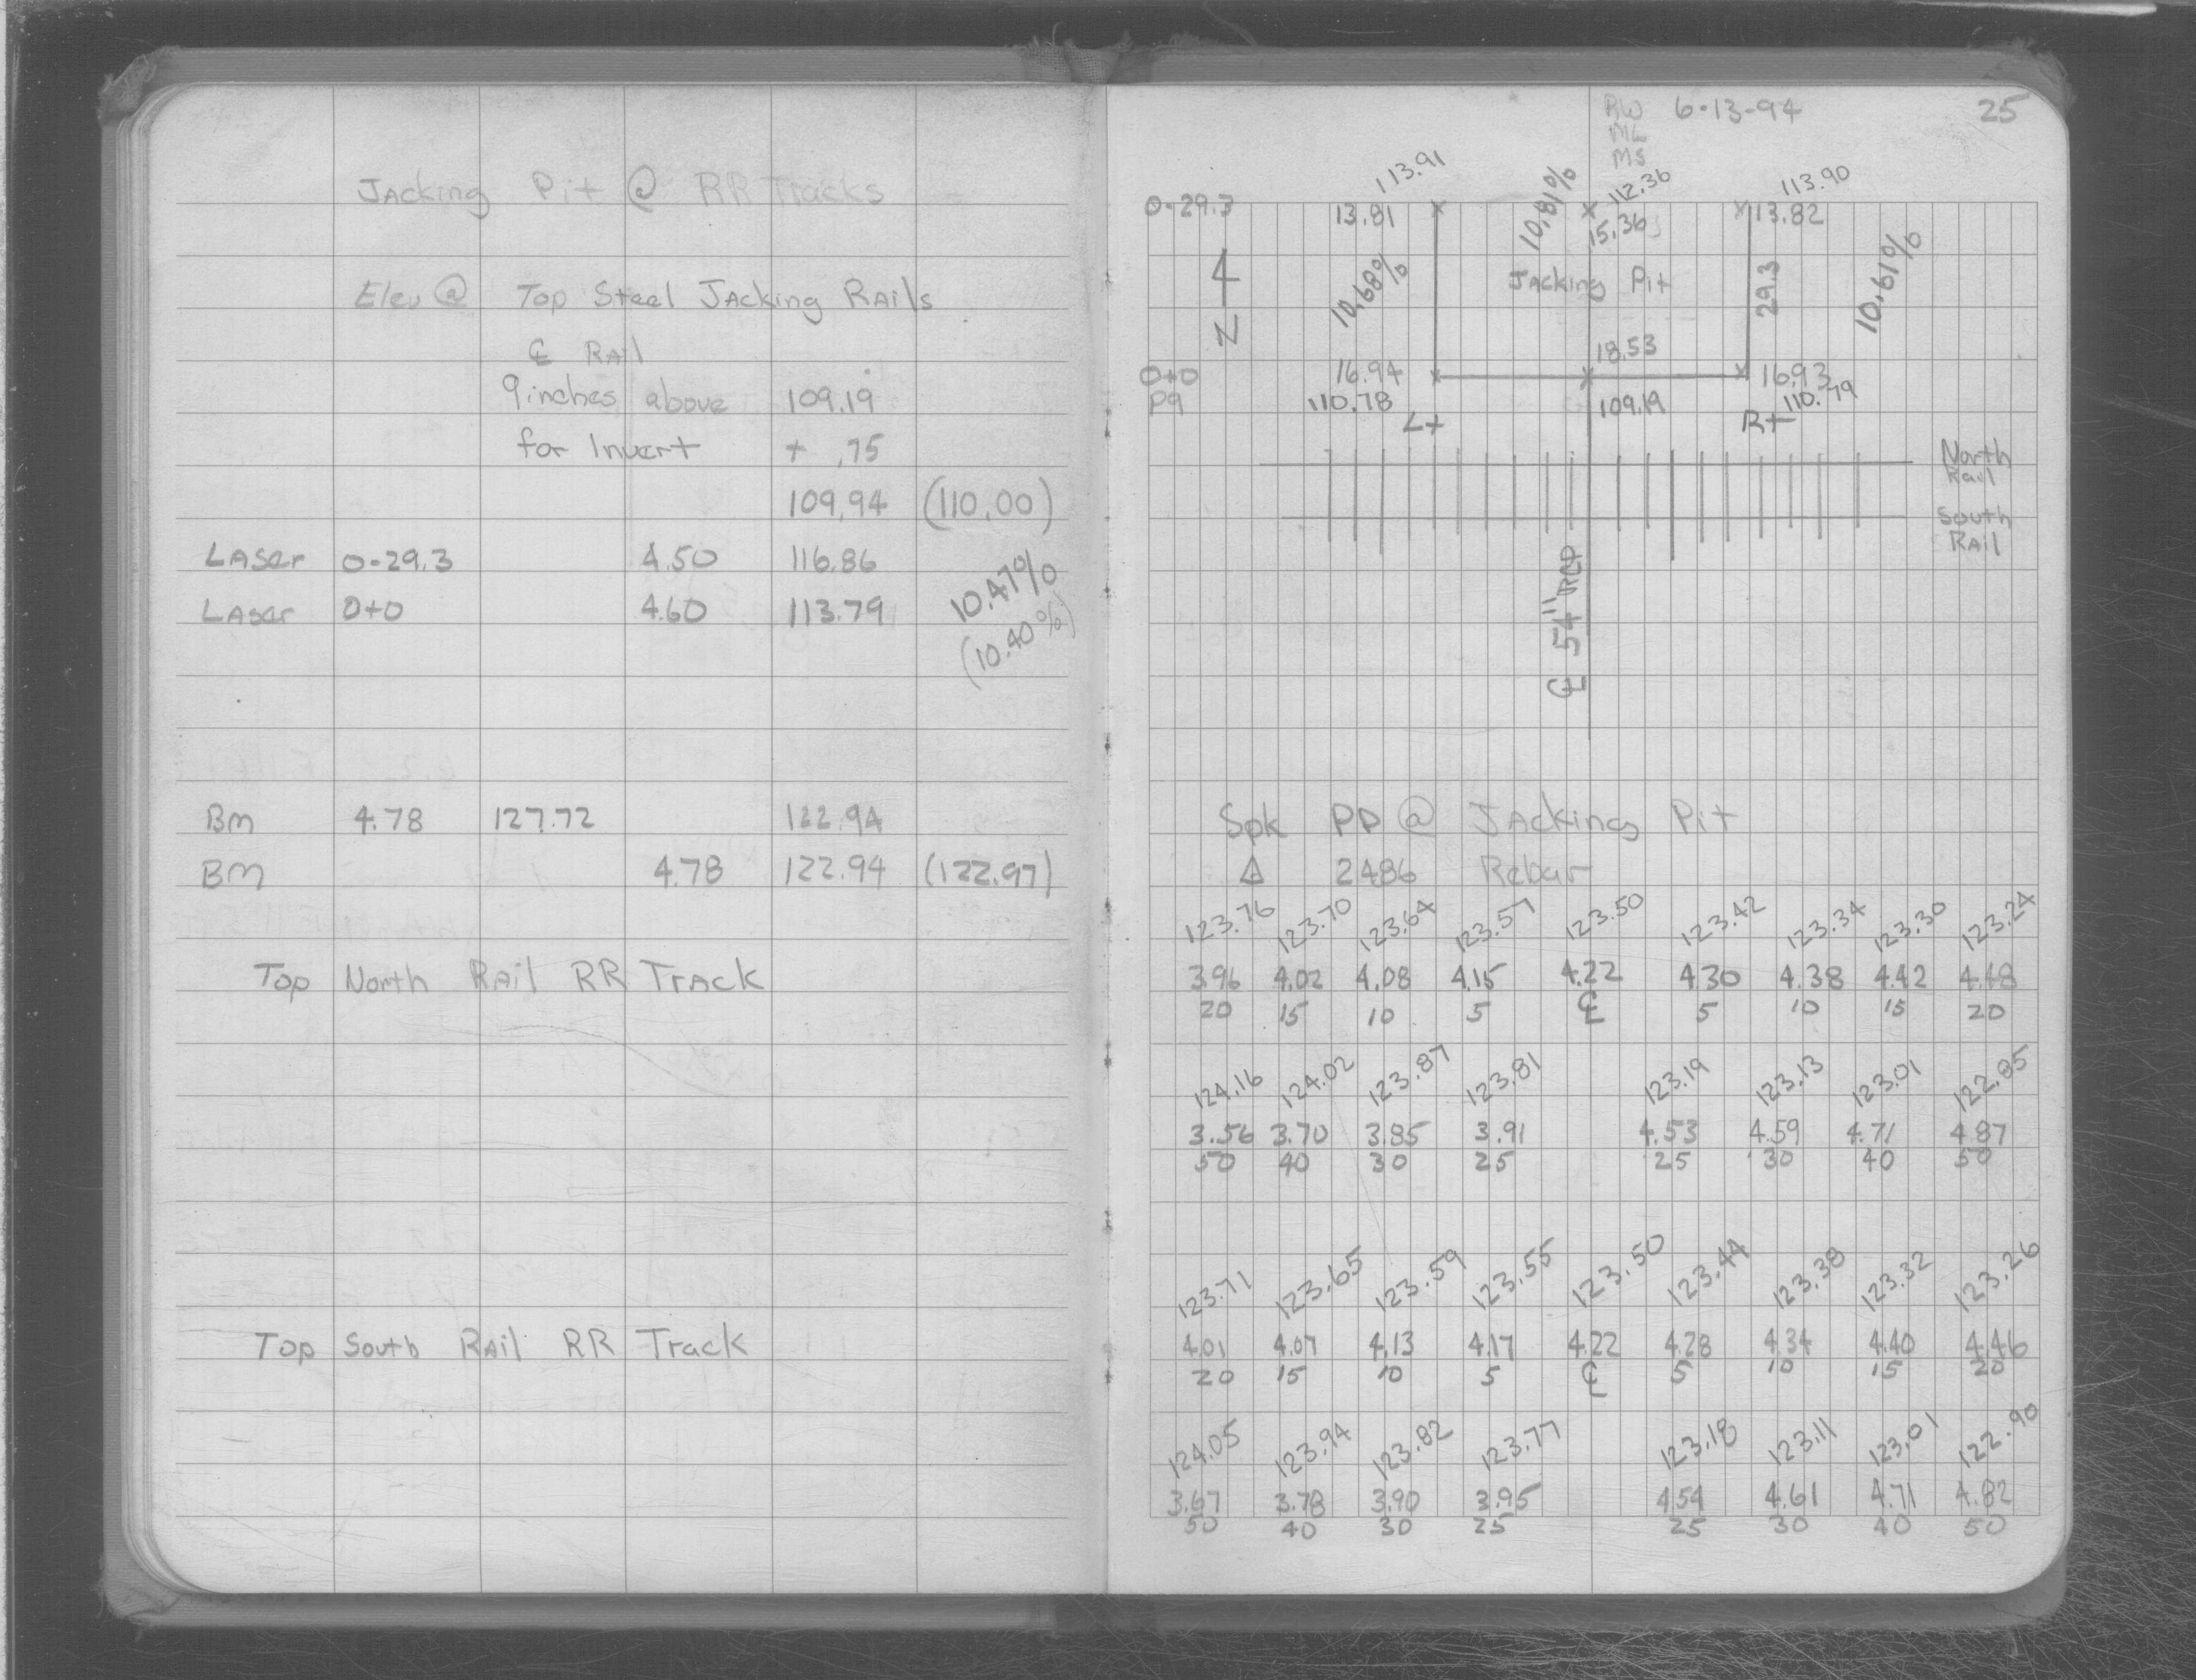 Jacking Pit @ RR Tracks
Elev @ Top Steel Jacking Rails
℄ Rail
9 inches above 109.19
for Invert + .75
109.94 (110.00)
Laser 0-29.3 4.50 116.86
Laser 0+0 4.60 113.79
10.47%
(10.40%)
BM 4.78 127.72 122.94
BM 4.78 122.94 (122.97)
Top North Rail RR Track
Top South Rail RR Track
RW 6-13-94 25
ML
MS
113.91 10.81% 112.36 113.90
0-29.3 13.81 15.36 13.82
4
N
10.68% Jacking Pit 29.3 10.61%
18.53
0+0 16.94 16.93
110.78 109.19 110.79
Lt Rt
North
Rail
South
Rail
℄ 54" RCP
Spk PP @ Jacking Pit
△ 2486 Rebar
123.76 123.70 123.64 123.57 123.50 123.42 123.34 123.30 123.24
3.96 4.02 4.08 4.15 4.22 4.30 4.38 4.42 4.48
20 15 10 5 ℄ 5 10 15 20
124.16 124.02 123.87 123.81 123.19 123.13 123.01 122.85
3.56 3.70 3.85 3.91 4.53 4.59 4.71 4.87
50 40 30 25 25 30 40 50
123.71 123.65 123.59 123.55 123.50 123.44 123.38 123.32 123.26
4.01 4.07 4.13 4.17 4.22 4.28 4.34 4.40 4.46
20 15 10 5 ℄ 5 10 15 20
124.05 123.94 123.82 123.77 123.18 123.11 123.01 122.90
3.67 3.78 3.90 3.95 4.54 4.61 4.71 4.82
50 40 30 25 25 30 40 50